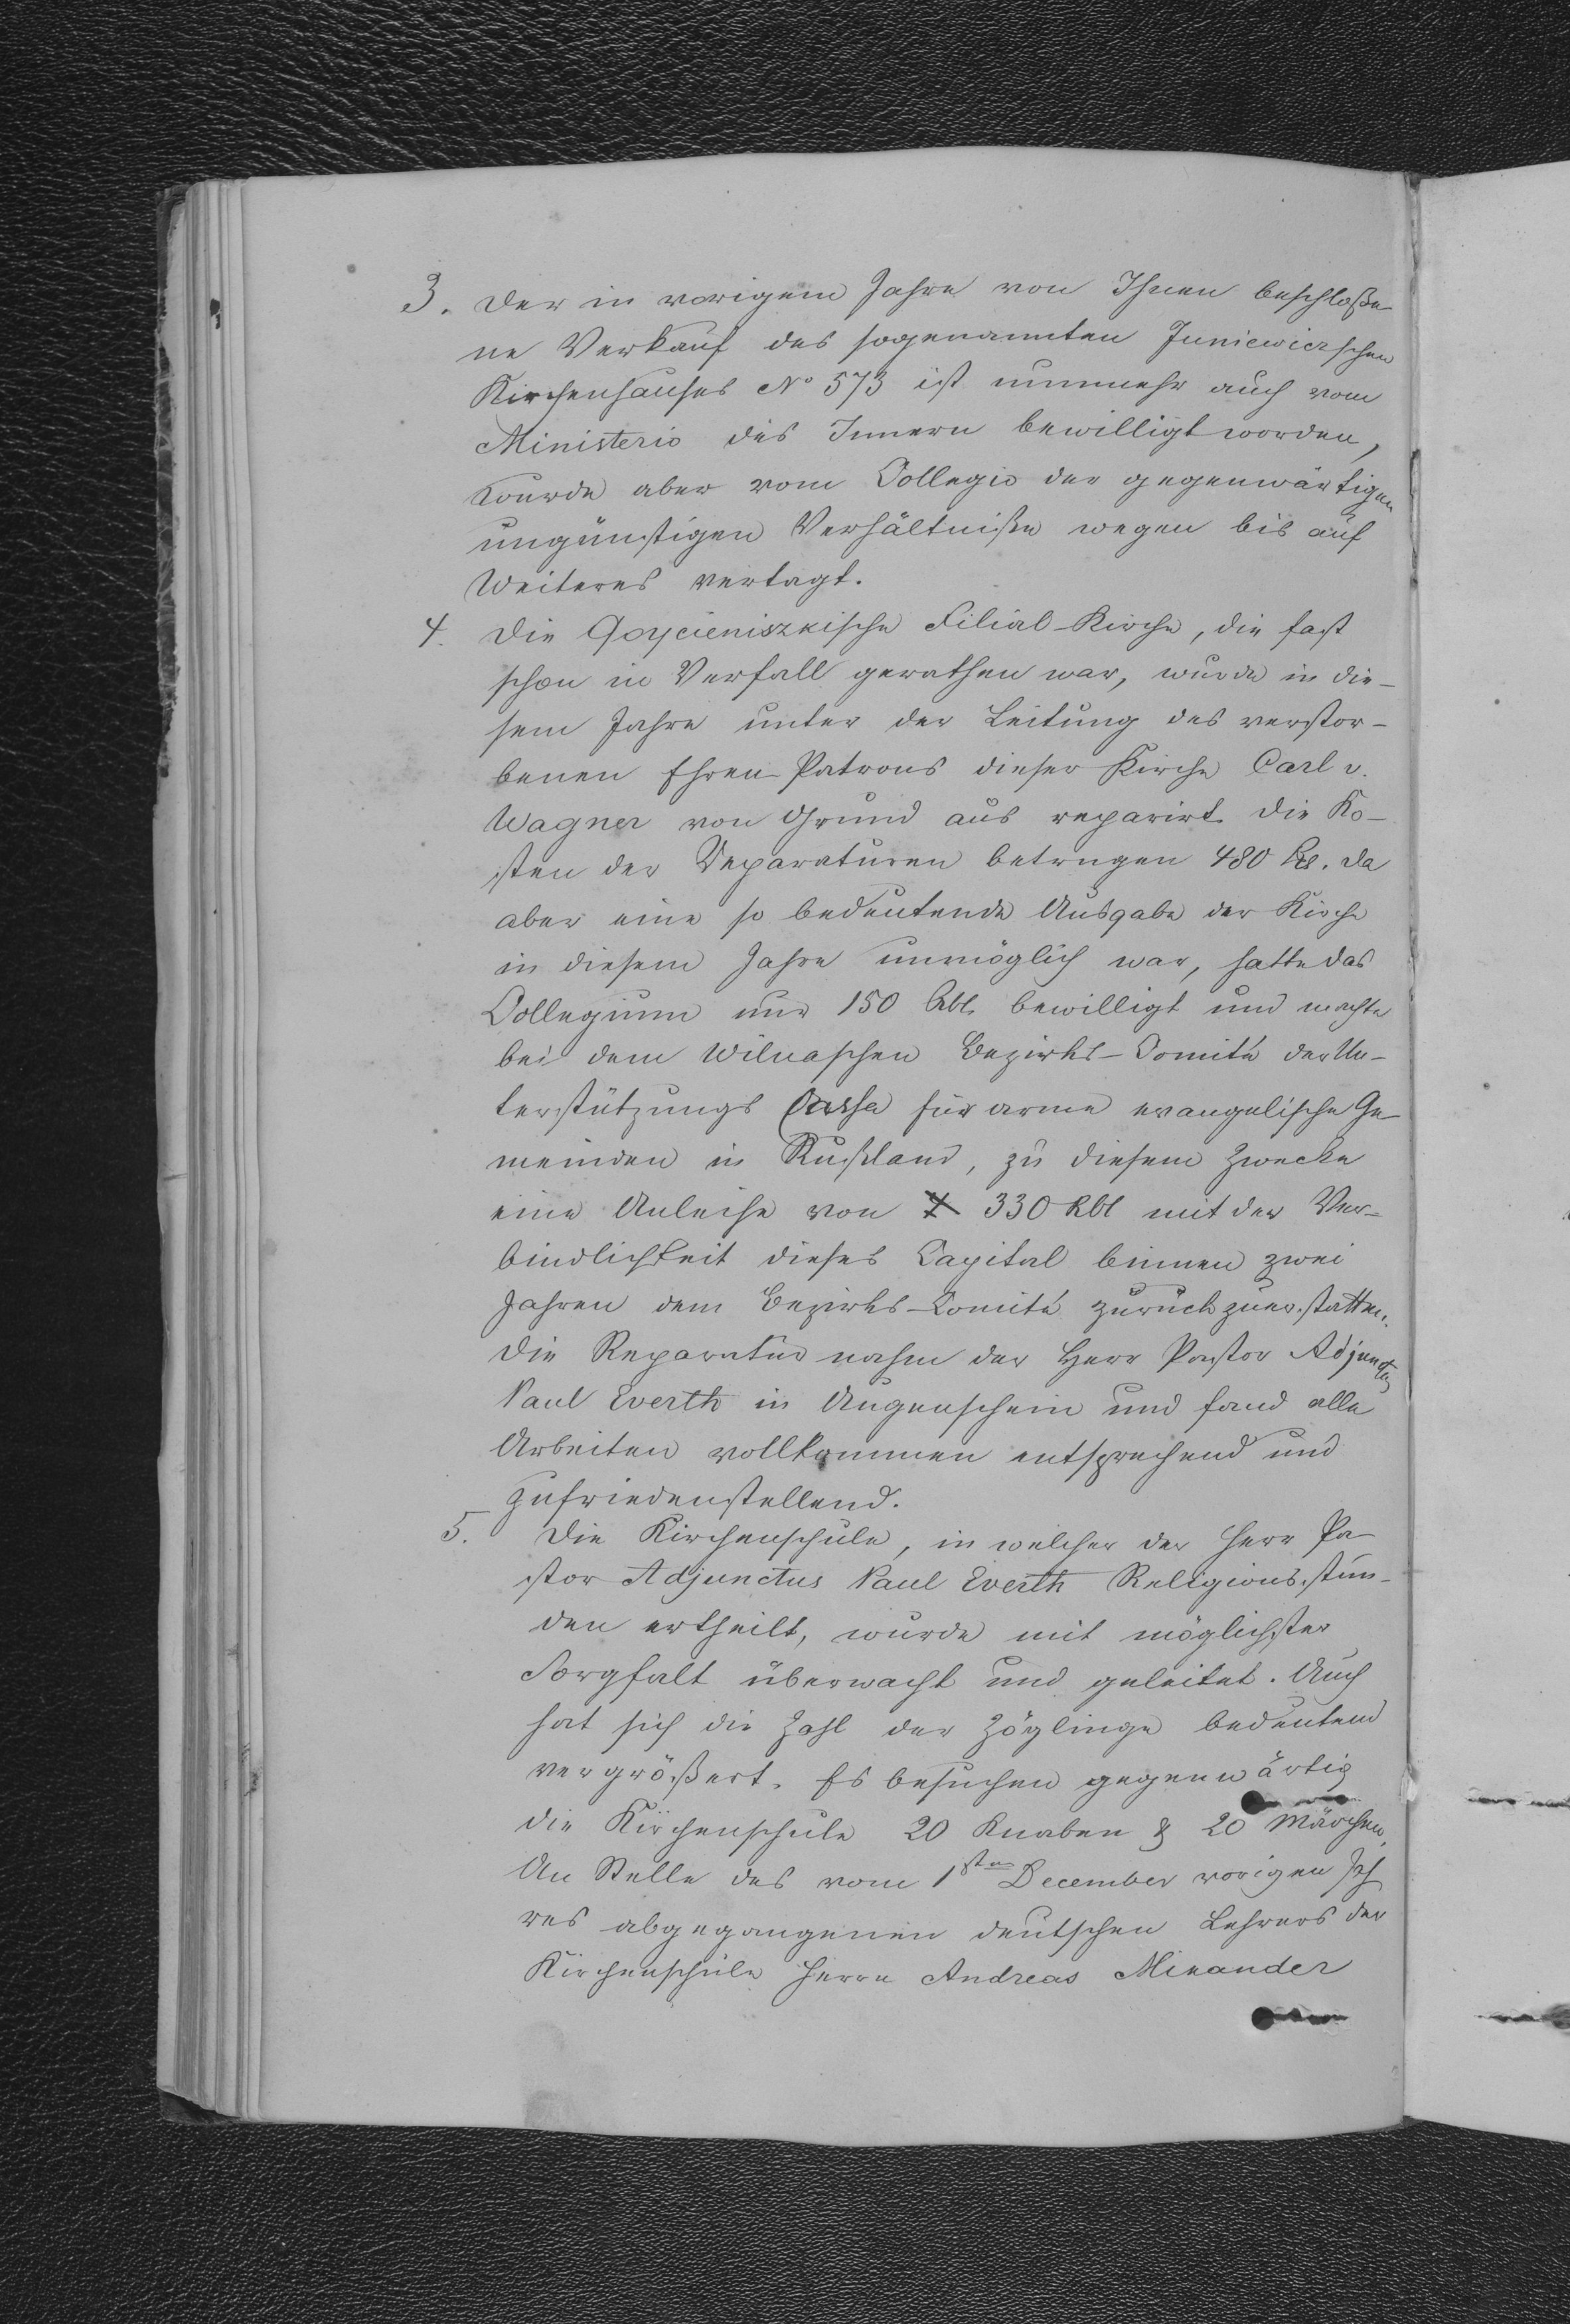 3. Der in vorigem Jahre von Ihnen beschloße
ne Verkauf des sogenannten Juniewiczschen
Kirchenhauses No 573 ist nunmehr auch vom
Ministerio des Innern bewilligt worden,
wurde aber vom Collegio der gegenwärtigen
ungünstigen Verhältniße wegen bis auf
Weiteres vertagt.
4. Die Goycieniszkische Filial-Kirche, die fast
schon in Verfall gerathen war, wurde in die-
sem Jahre unter der Leitung des verstor-
benen Ehren-Patrons dieser Kirche Carl v.
Wagner von Grund aus reparirt. Die Ko-
sten der Reparaturen betrugen 480 Rbl. Da
aber eine so bedeutende Ausgabe der Kirche
in diesem Jahre unmöglich war, hatte das
Collegium nur 150 Rbl. bewilligt und machte
bei dem Wilnaschen Bezirks-Comité der Un-
terstützungs Casse für arme evangelische Ge-
meinden in Rußland, zu diesem Zwecke
eine Anleihe von 330 Rbl mit der Ver-
bindlichkeit dieses Capital binnen zwei
Jahren dem Bezirks-Comité zurückzuerstatten.
Die Reparatur nahm der Herr Pastor Adjunctus
Paul Everth in Augenschein und fand alle
Arbeiten vollkommen entsprechend und
zufriedenstellend.
5. Die Kirchenschule, in welcher der Herr Pa-
stor Adjunctus Paul Everth Religionsstun-
den ertheilt, wurde mit möglichster
Sorgfalt überwacht und geleitet. Auch
hat sich die Zahl der Zöglinge bedeutend
vergrößert. Es besuchen gegenwärtig
die Kirchenschule 20 Knaben & 20 Mädchen.
An Stelle des vom 1sten December vorigen Jah
res abgegangenen deutschen Lehrers der
Kirchenschule Herrn Andreas Minander